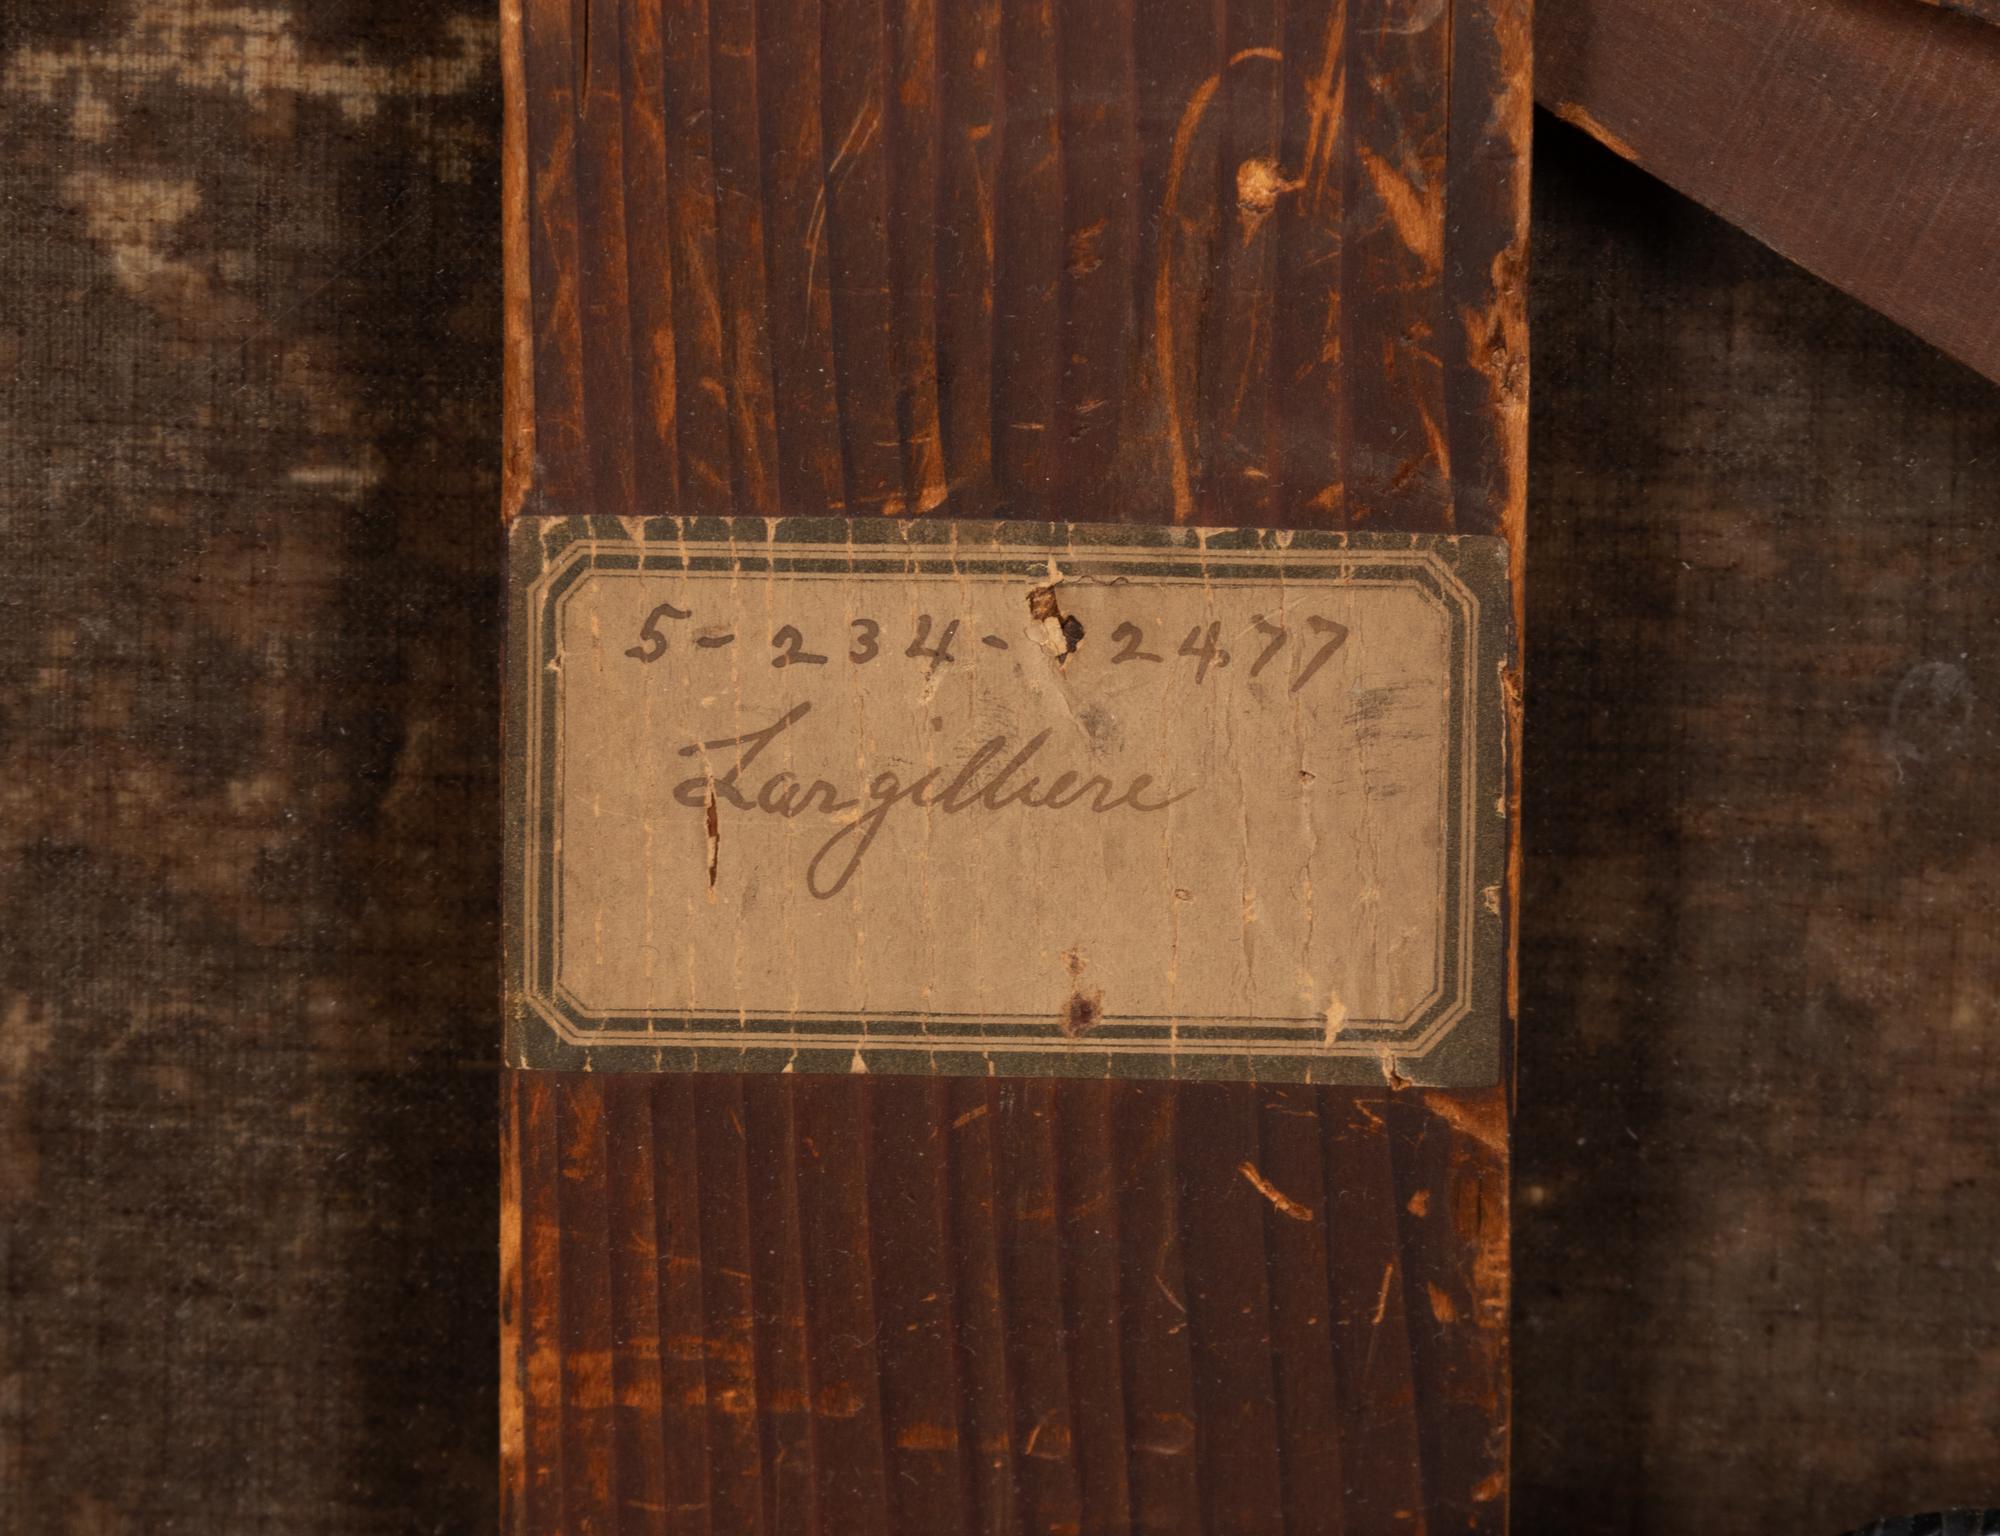 5-234- 2477
Largilliere